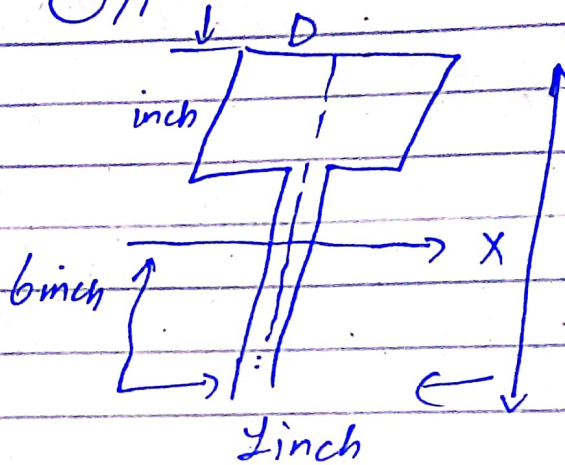 D
inch
X
6inch
1inch